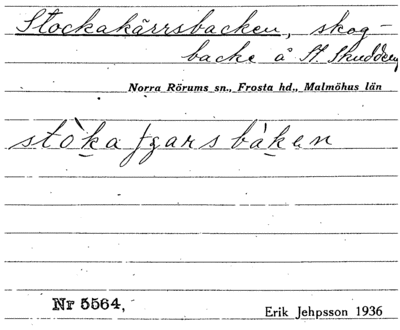 Stockakärrsbacken, skog-
backe å St. Skudderup
Norra Rörums sn., Frosta hd., Malmöhus län
Nr 5564,
Erik Jehpsson 1936